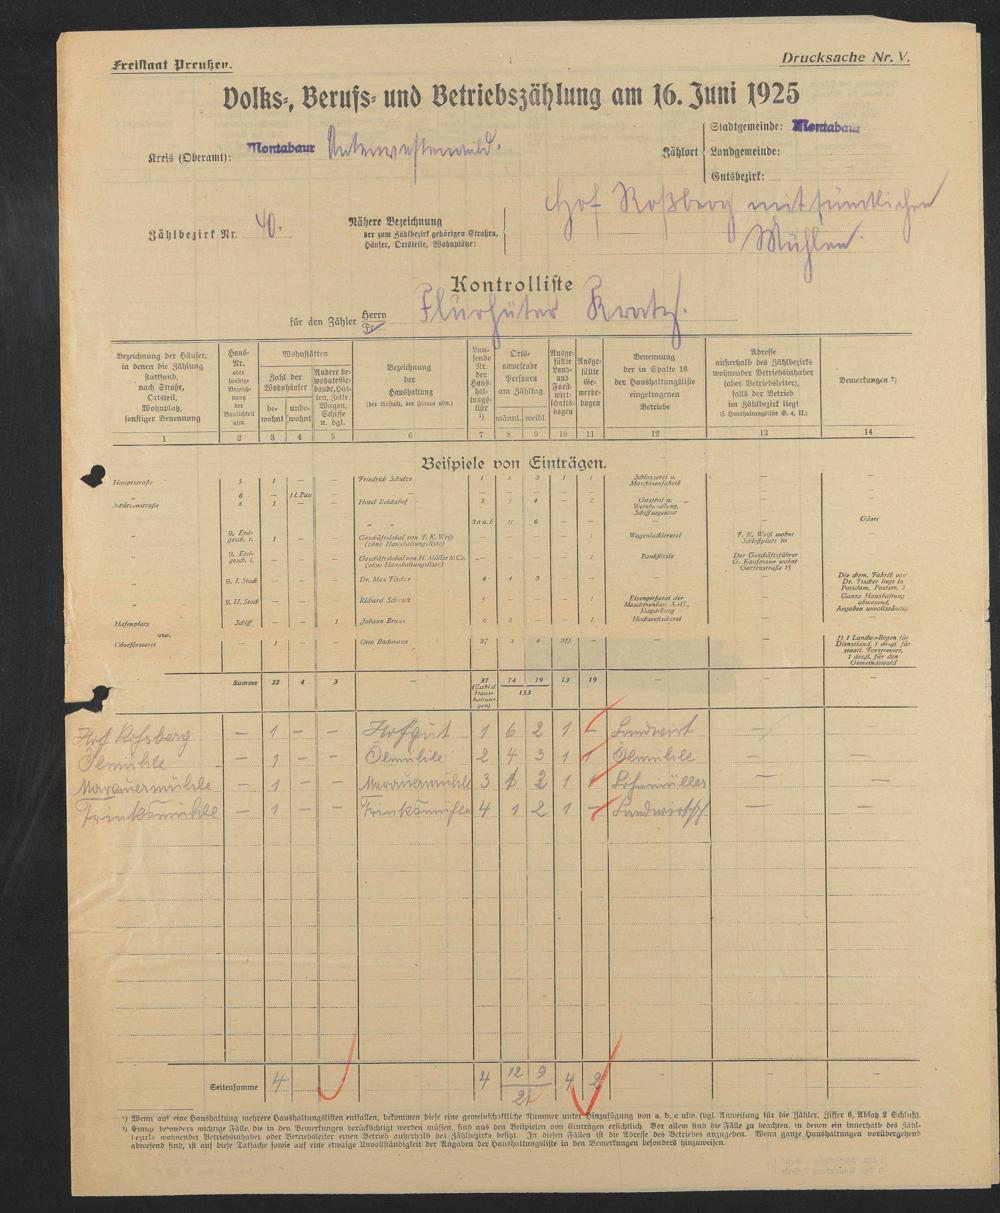 Freistaat Preußen.
Drucksache Nr. V.
Volks-, Berufs- und Betriebszählung am 16. Juni 1925
Kreis (Oberamt): Montabaur Unterwesterwald.
Zählort
Stadtgemeinde: Montabaur
Landgemeinde:
Gutsbezirk:
Zählbezirk Nr. 40.
Nähere Bezeichnung
der zum Zählbezirk gehörigen Straßen,
Häuser, Ortsteile, Wohnplätze:
Hof Roßberg mit sämtlichen
Mühlen.
Kontrolliste
für den Zähler Herrn Flurhüter Kratz.
Fr.
Bezeichnung der Häuser, in denen die Zählung stattfand, nach Straße, Ortsteil, Wohnplatz, sonstiger Benennung
Haus-Nr. oder sonstige Bezeichnung der Baulichkeit usw.
Wohnstätten
Zahl der Wohnhäuser
bewohnt
unbewohnt
Andere bewohnte Gebäude, Hütten, Zelte, Wagen, Schiffe u. dgl.
Bezeichnung der Haushaltung
(der Anstalt, der Firma usw.)
Laufende Nr. der Haushaltungsliste ¹)
Ortsanwesende Personen am Zähltag
männl. weibl.
Ausgefüllte Land- und Forstwirtschaftsbogen
Ausgefüllte Gewerbebogen
Benennung der in Spalte 16 der Haushaltungsliste eingetragenen Betriebe
Adresse außerhalb des Zählbezirks wohnender Betriebsinhaber (oder Betriebsleiter), falls der Betrieb im Zählbezirk liegt
(s. Haushaltungsliste S. 4, II.)
Bemerkungen ²)
1 2 3 4 5 6 7 8 9 10 11 12 13 14
Beispiele von Einträgen.
Hauptstraße 5 1 — — Friedrich Schulze 1 5 3 1 1 Schlosserei u. Maschinenfabrik — —
6 — 1 i. Bau — — — — — — — — — —
Schützenstraße 8 1 — — Hotel Reichshof 2 5 4 — 2 Gasthof u. Weinhandlung, Schiffsagentur — —
„ „ 3 a u. b 11 6 — — — — Gäste
„ 9, Erdgesch. r. 1 — — Geschäftslokal von F. K. Weiß (ohne Haushaltungsliste) — — — — 1 Wagenlackiererei F. K. Weiß wohnt Schloßplatz 10 —
„ 9, Erdgesch. l. — — — Geschäftslokal von H. Müller & Co. (ohne Haushaltungsliste) — — — — 1 Bankfiliale Der Geschäftsführer G. Kaufmann wohnt Gartenstraße 15 —
„ 9, I. Stock — — — Dr. Max Fischer 4 4 3 — — — — Die chem. Fabrik von Dr. Fischer liegt in Potsdam, Poststr. 3
„ 9, II. Stock — — — Richard Schmidt 5 — — — 1 Eisengießerei der Maschinenbau A.-G., Magdeburg — Ganze Haushaltung abwesend, Angaben unvollständig.
Hafenplatz Schiff — — 1 Johann Bruns 6 3 — — 1 Hochseefischerei — —
usw.
Oberförsterei 1 — — Otto Bachmann 37 3 4 3†) — — — †) 1 Landw.-Bogen für Dienstland, 1 desgl. für staatl. Forstrevier, 1 desgl. für den Gemeindewald
Summe 22 4 3 — 37 74 79 13 19 — — —
(Zahl d. Haushaltungen) 153
Hof Roßberg — 1 — Hofgut 1 6 2 1 — Landwirt — —
Ölmühle — 1 — Ölmühle 2 4 3 1 1 Ölmühle — —
Marauermühle — 1 — Marauermühle 3 1 2 1 1 Lohnmüller — —
Frinksmühle — 1 — Frinksmühle 4 1 2 1 — Landwirtsch — —
Seitensumme 4 — — 4 12 9 4 2 — — —
21
¹) Wenn auf eine Haushaltung mehrere Haushaltungslisten entfallen, bekommen diese eine gemeinschaftliche Nummer unter Hinzufügung von a, b, c usw. (vgl. Anweisung für die Zähler, Ziffer 6, Absatz 2 Schluß).
²) Einige besonders wichtige Fälle, die in den Bemerkungen berücksichtigt werden müssen, sind aus den Beispielen von Einträgen ersichtlich. Vor allem sind die Fälle zu beachten, in denen ein innerhalb des Zähl-
bezirks wohnender Betriebsinhaber oder Betriebsleiter einen Betrieb außerhalb des Zählbezirks besitzt. In diesen Fällen ist die Adresse des Betriebes anzugeben. Wenn ganze Haushaltungen vorübergehend
abwesend sind, ist auf diese Tatsache sowie auf eine etwaige Unvollständigkeit der Angaben der Haushaltungsliste in den Bemerkungen besonders hinzuweisen.